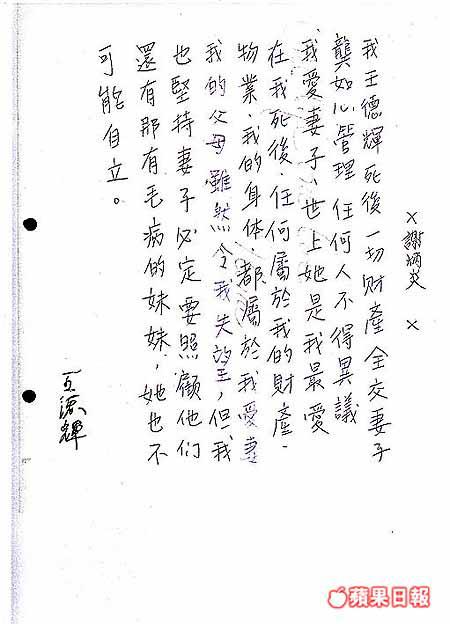 × 謝炳炎 ×
我王德輝死後一切財產全交妻子
龔如心管理任何人不得異議
我愛妻子、世上她是我最愛
在我死後,任何屬於我的財產.
物業.我的身体.都屬於我愛妻
我的父母雖然令我失望,但我
也堅持妻子必定要照顧他們
還有那有毛病的妹妹,她也不
可能自立。
王德輝
蘋果日報